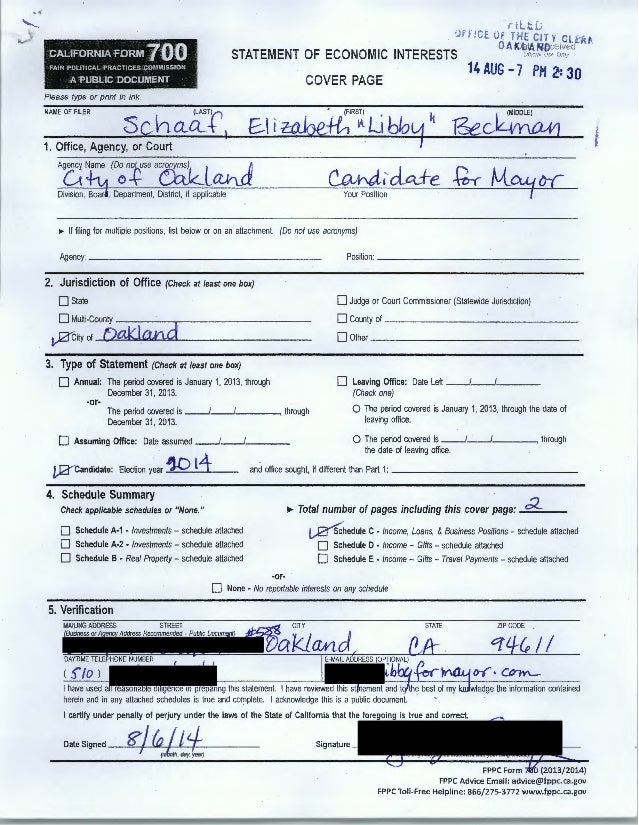 FILED
OFFICE OF THE CITY CLERK
OAKLAND
Received
Official Use Only
14 AUG -7 PM 2:30
CALIFORNIA FORM 700
FAIR POLITICAL PRACTICES COMMISSION
A PUBLIC DOCUMENT
STATEMENT OF ECONOMIC INTERESTS
COVER PAGE
Please type or print in ink.
NAME OF FILER (LAST) (FIRST) (MIDDLE)
Schaaf, Elizabeth "Libby" Beckman
1. Office, Agency, or Court
Agency Name (Do not use acronyms)
City of Oakland Candidate for Mayor
Division, Board, Department, District, if applicable Your Position
► If filing for multiple positions, list below or on an attachment. (Do not use acronyms)
Agency: Position:
2. Jurisdiction of Office (Check at least one box)
State Judge or Court Commissioner (Statewide Jurisdiction)
Multi-County County of
City of Oakland Other
3. Type of Statement (Check at least one box)
Annual: The period covered is January 1, 2013, through Leaving Office: Date Left / /
December 31, 2013. (Check one)
-or-
The period covered is / / , through The period covered is January 1, 2013, through the date of
December 31, 2013. leaving office.
Assuming Office: Date assumed / / The period covered is / / , through
the date of leaving office.
Candidate: Election year 2014 and office sought, if different than Part 1:
4. Schedule Summary
Check applicable schedules or "None." ► Total number of pages including this cover page: 2
Schedule A-1 - Investments – schedule attached Schedule C - Income, Loans, & Business Positions – schedule attached
Schedule A-2 - Investments – schedule attached Schedule D - Income – Gifts – schedule attached
Schedule B - Real Property – schedule attached Schedule E - Income – Gifts – Travel Payments – schedule attached
-or-
None - No reportable interests on any schedule
5. Verification
MAILING ADDRESS STREET CITY STATE ZIP CODE
(Business or Agency Address Recommended - Public Document)
#588 Oakland CA 94611
DAYTIME TELEPHONE NUMBER E-MAIL ADDRESS (OPTIONAL)
(510) ibbyformayor.com
I have used all reasonable diligence in preparing this statement. I have reviewed this statement and to the best of my knowledge the information contained
herein and in any attached schedules is true and complete. I acknowledge this is a public document.
I certify under penalty of perjury under the laws of the State of California that the foregoing is true and correct.
Date Signed 8/6/14 Signature
(month, day, year)
FPPC Form 700 (2013/2014)
FPPC Advice Email: advice@fppc.ca.gov
FPPC Toll-Free Helpline: 866/275-3772 www.fppc.ca.gov